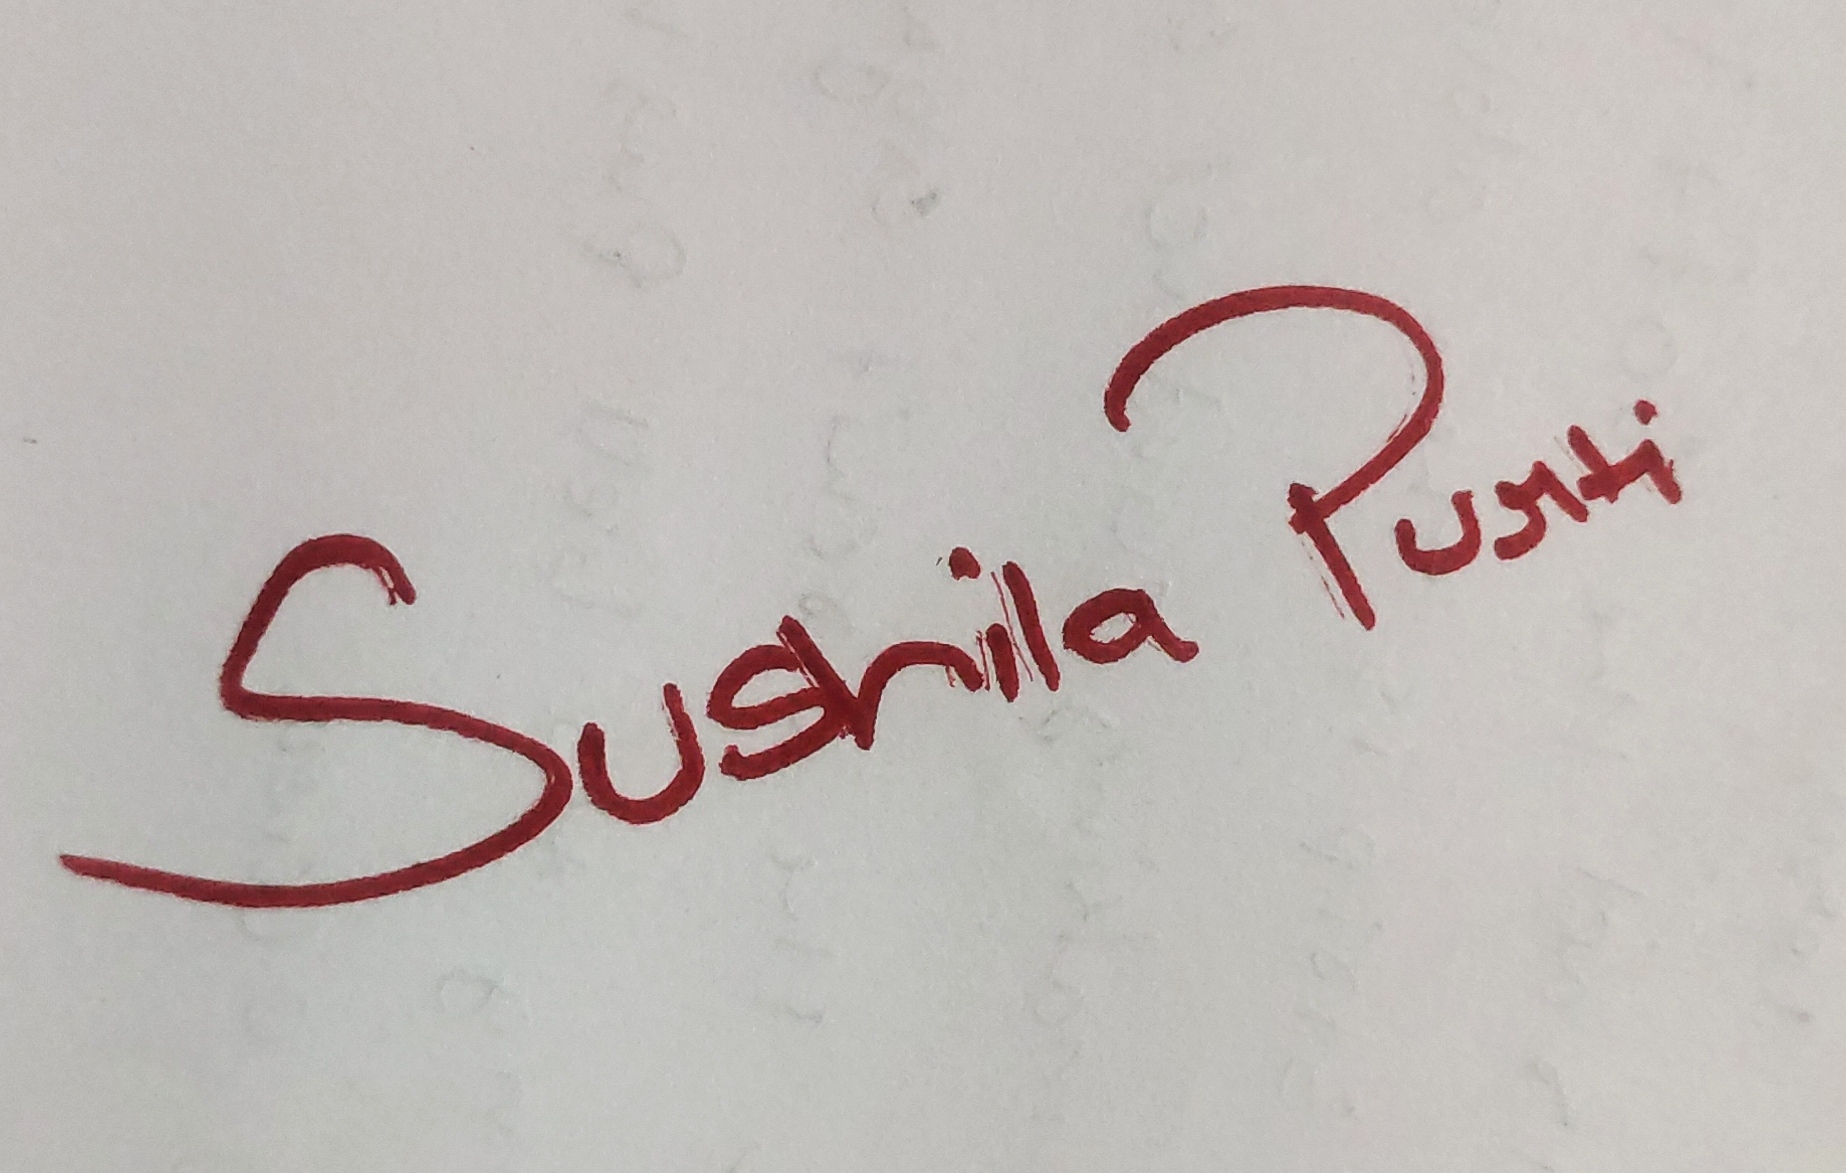 Sushila Pusti